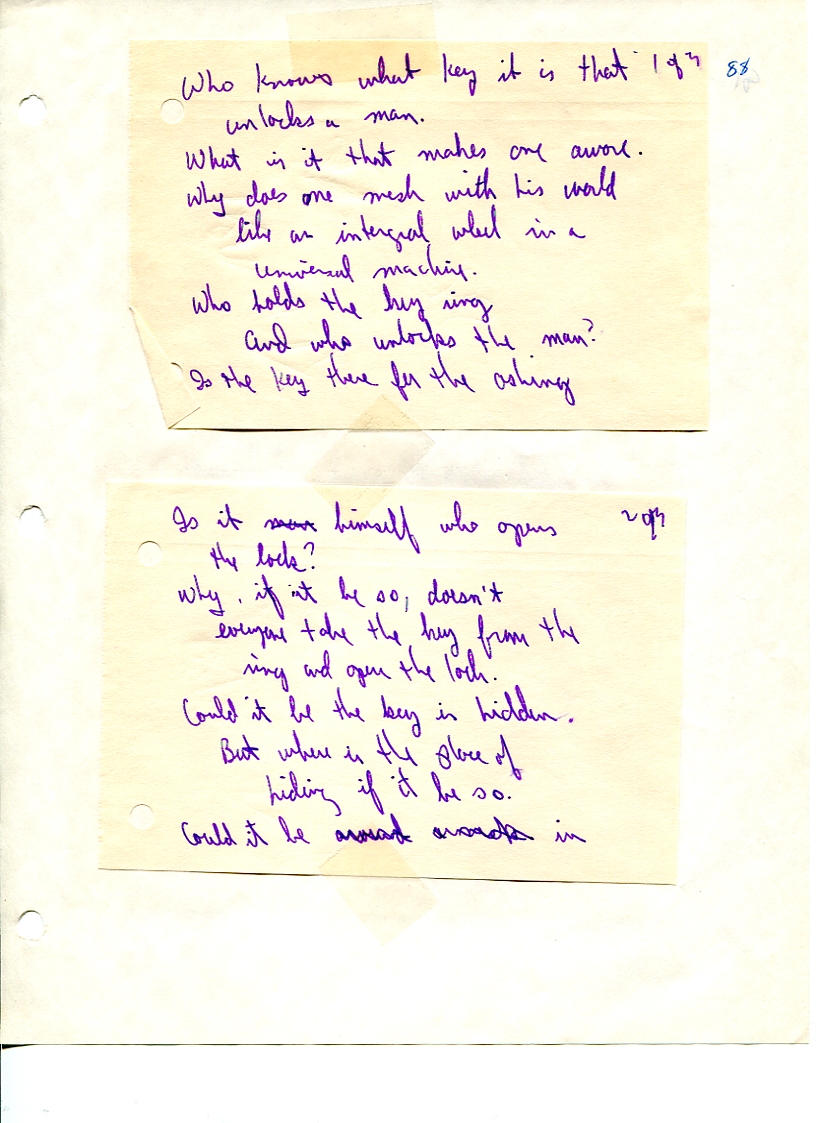 Who knows what key it is that 1 of 3 88
unlocks a man.
What is it that makes one aware.
Why does one mesh with his world
like an intergral wheel in a
universal machine.
Who holds the key ring
and who unlocks the man?
Is the key there for the asking
Is it himself who opens 2 of 3
the lock?
Why, if it be so, doesn't
everyone take the key from the
ring and open the lock.
Could it be the key is hidden.
But where is the place of
hiding if it be so.
Could it be in